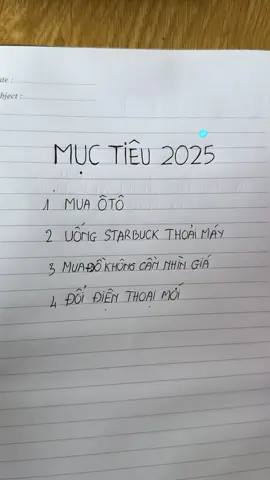 ate :
bject :
MỤC TIÊU 2025
1 MUA ÔTÔ
2 UỐNG STARBUCK THOẢI MÁY
3 MUA ĐỒ KHÔNG CẦN NHÌN GIÁ
4 ĐỔI ĐIỆN THOẠI MỚI